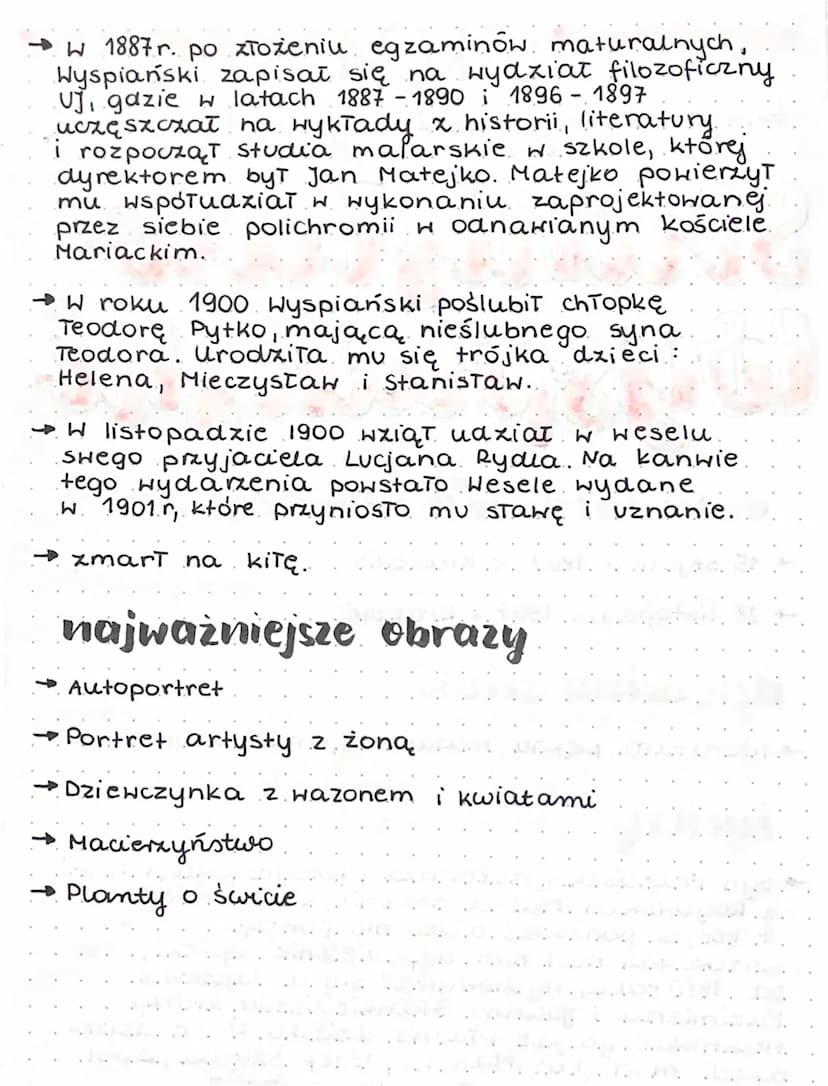 → W 1887r. po złożeniu egzaminów maturalnych,
Wyspiański zapisał się na wydział filozoficzny
UJ, gdzie w latach 1887 - 1890 i 1896 - 1897
uczęszczał na wykłady z historii, literatury
i rozpoczął studia malarskie w szkole, której
dyrektorem był Jan Matejko. Matejko powierzył
mu współudział w wykonaniu zaprojektowanej
przez siebie polichromii w odnawianym kościele
Mariackim.
→ W roku 1900 Wyspiański poślubił chłopkę
Teodorę Pytko, mającą nieślubnego syna
Teodora. Urodziła mu się trójka dzieci:
Helena, Mieczysław i Stanisław.
→ W listopadzie 1900 wziął udział w weselu
swego przyjaciela Lucjana Rydla. Na kanwie
tego wydarzenia powstało Wesele wydane
w 1901 r, które przyniosło mu sławę i uznanie.
→ zmarł na kiłę.
najważniejsze obrazy
→ Autoportret
→ Portret artysty z żoną
→ Dziewczynka z wazonem i kwiatami
→ Macierzyństwo
→ Planty o świcie